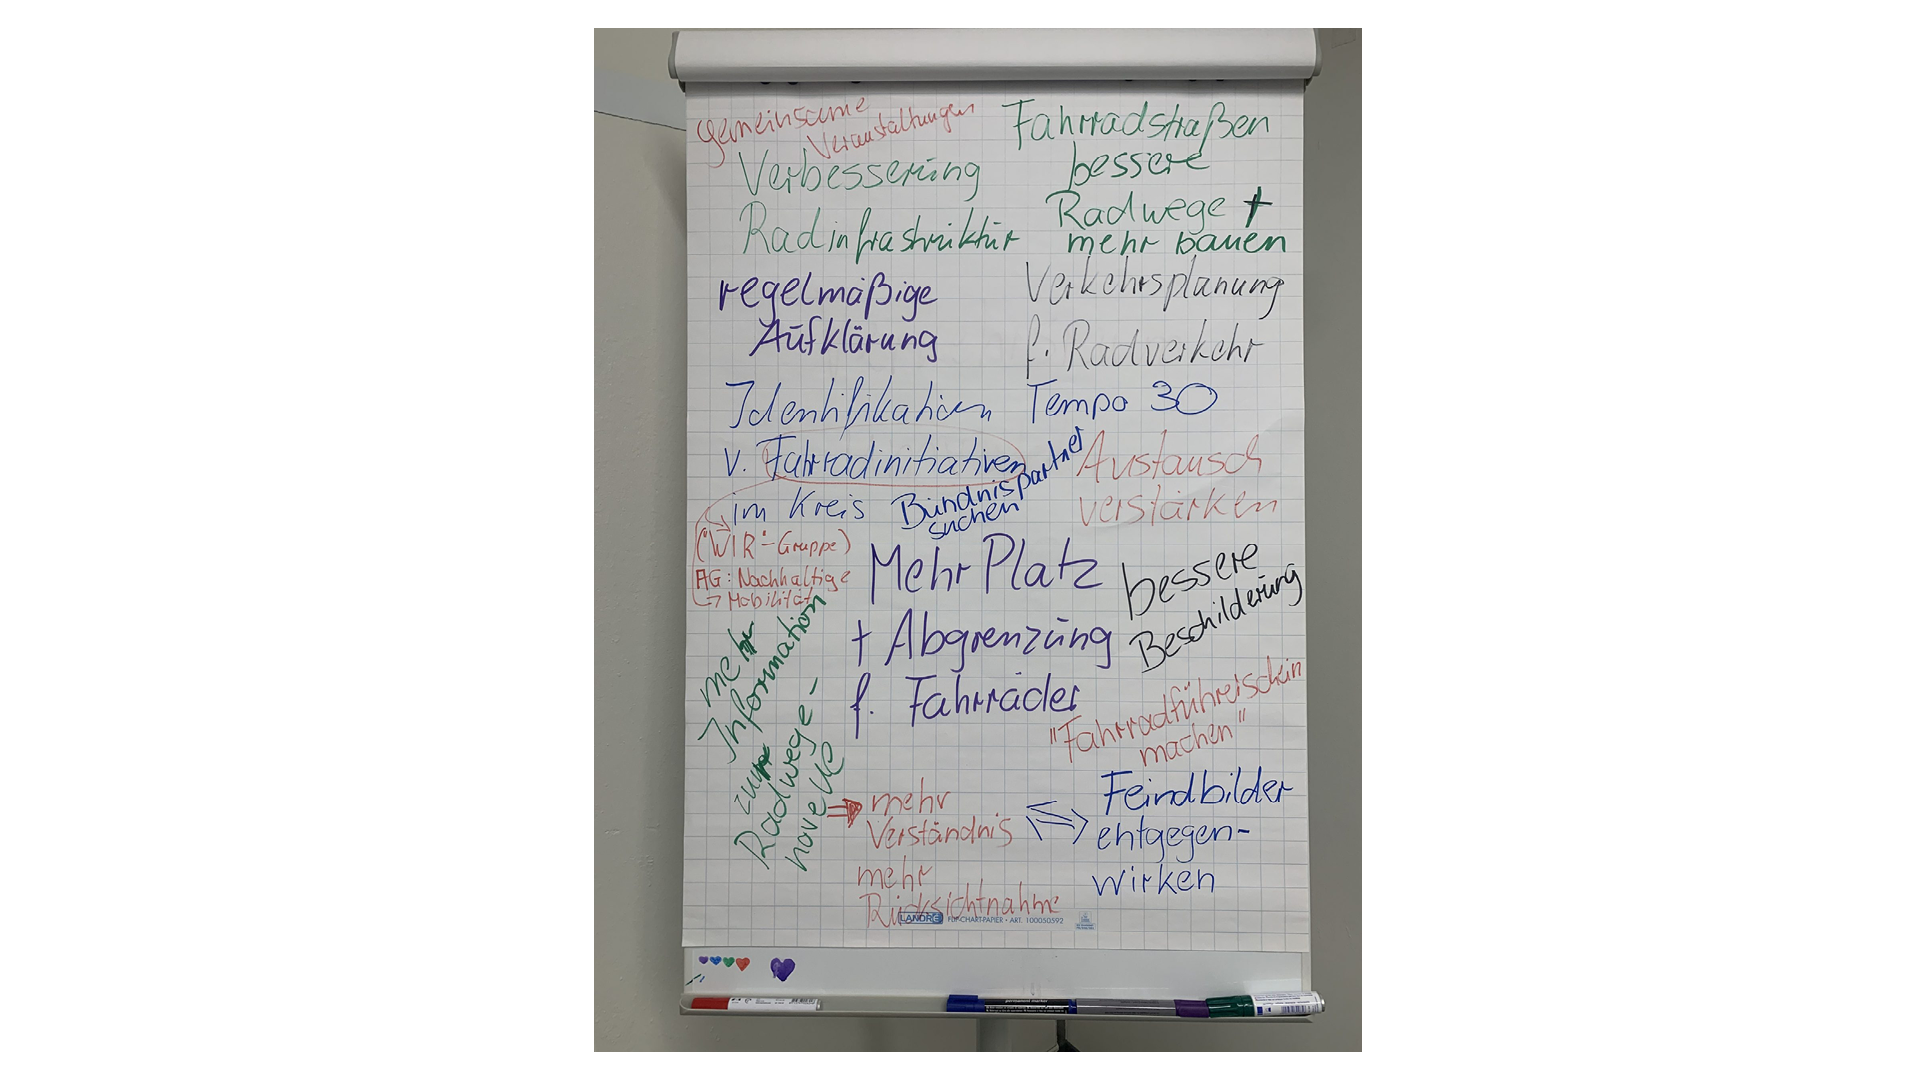 gemeinsame
Veranstaltungen
Verbesserung
Radinfrastruktur
Fahrradstraßen
bessere
Radwege +
mehr bauen
regelmäßige
Aufklärung
Verkehrsplanung
f. Radverkehr
Identifikation
v. Fahrradinitiativen
im Kreis
Tempo 30
Bündnispartner
suchen
Austausch
verstärken
("WIR"-Gruppe)
AG: Nachhaltige
→ Mobilität
Mehr Platz
+ Abgrenzung
f. Fahrräder
bessere
Beschilderung
mehr
Information
zur
Radwege-
novelle
"Fahrradführerschein
machen"
⇒ mehr
Verständnis
mehr
Rücksichtnahme
Feindbilder
entgegen-
wirken
LANDRÉ FLIPCHART-PAPIER • ART. 100050592
permanent marker